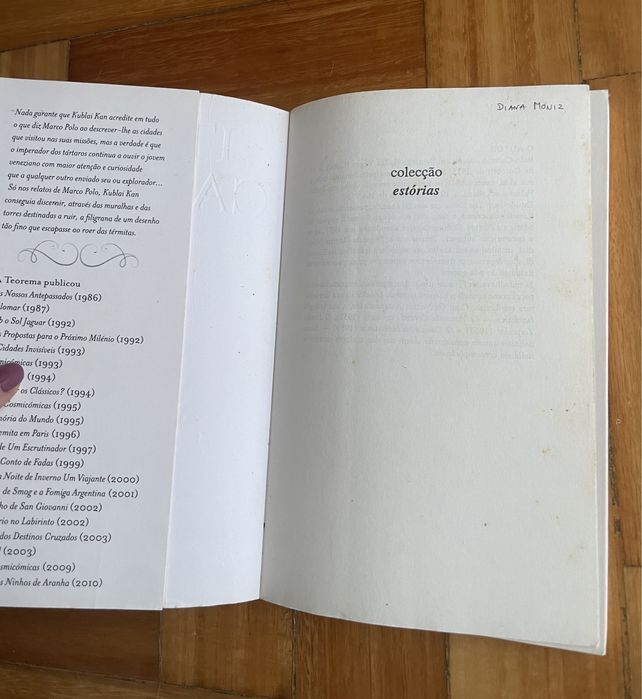 "Nada garante que Kublai Kan acredite em tudo
o que diz Marco Polo ao descrever-lhe as cidades
que visitou nas suas missões, mas a verdade é que
o imperador dos tártaros continua a ouvir o jovem
veneziano com maior atenção e curiosidade
que a qualquer outro enviado seu ou explorador...
Só nos relatos de Marco Polo, Kublai Kan
conseguia discernir, através das muralhas e das
torres destinadas a ruir, a filigrana de um desenho
tão fino que escapasse ao roer das térmitas.
Teorema publicou
Nossos Antepassados (1986)
lomar (1987)
o Sol Jaguar (1992)
Propostas para o Próximo Milénio (1992)
Cidades Invisíveis (1993)
micómicas (1993)
(1994)
os Clássicos? (1994)
Cosmicómicas (1995)
mória do Mundo (1995)
emita em Paris (1996)
de Um Escrutinador (1997)
Conto de Fadas (1999)
Noite de Inverno Um Viajante (2000)
de Smog e a Fomiga Argentina (2001)
ho de San Giovanni (2002)
rio no Labirinto (2002)
dos Destinos Cruzados (2003)
(2003)
smicómicas (2009)
Ninhos de Aranha (2010)
DIANA MONIZ
colecção
estórias